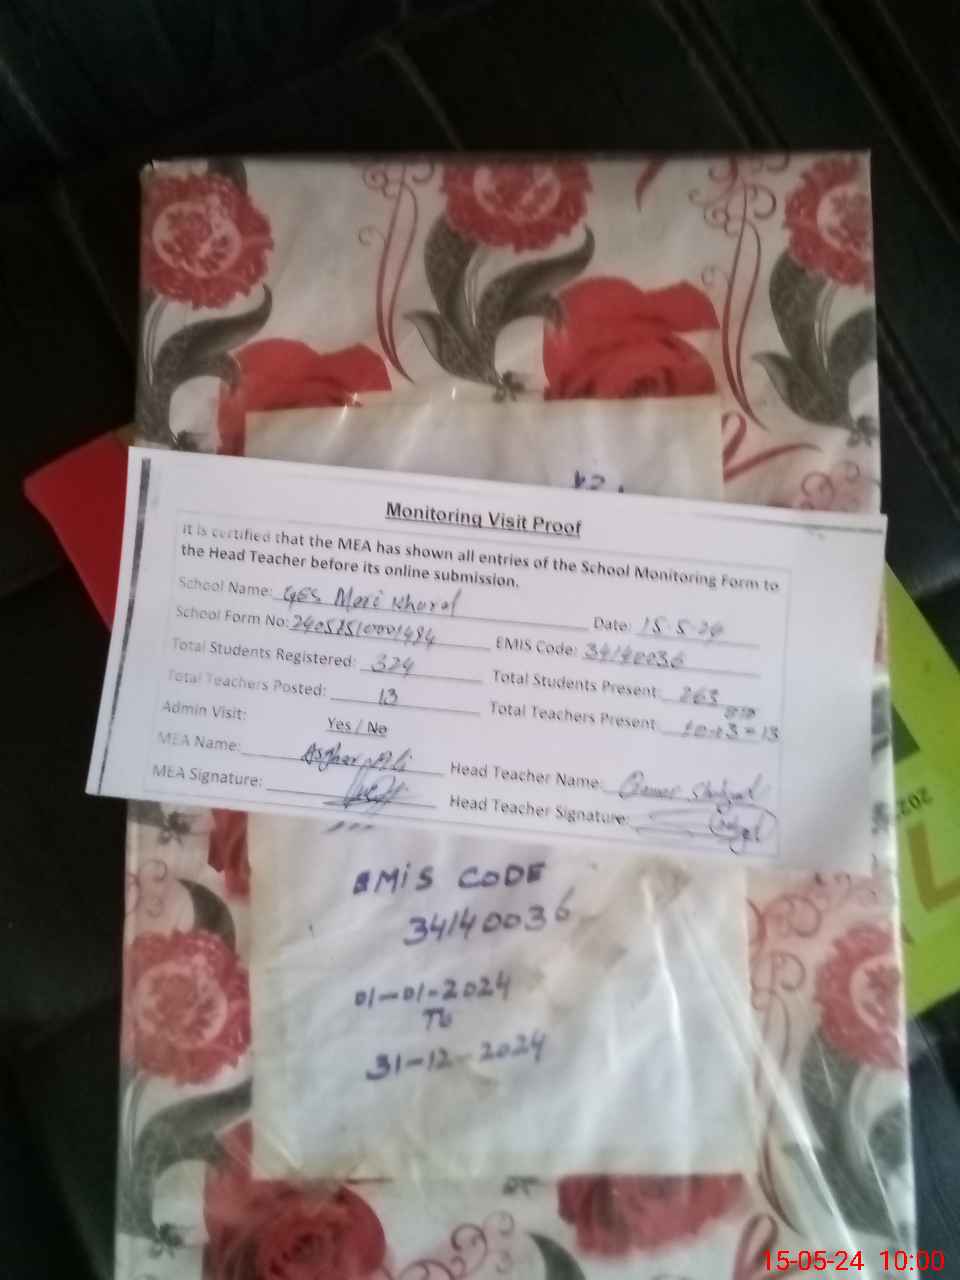 Monitoring Visit Proof
It is certified that the MEA has shown all entries of the School Monitoring Form to
the Head Teacher before its online submission.
School Name: GES Mari Kharal Date: 15-5-24
School Form No: EMIS Code: 34140036
Total Students Registered: 324 Total Students Present: 263
Total Teachers Posted: 13 Total Teachers Present: 10+3=13
Admin Visit: Yes / No
MEA Name: Asghar Ali Head Teacher Name:
MEA Signature: Head Teacher Signature:
EMiS CODE
34140036
01-01-2024
To
31-12-2024
15-05-24 10:00